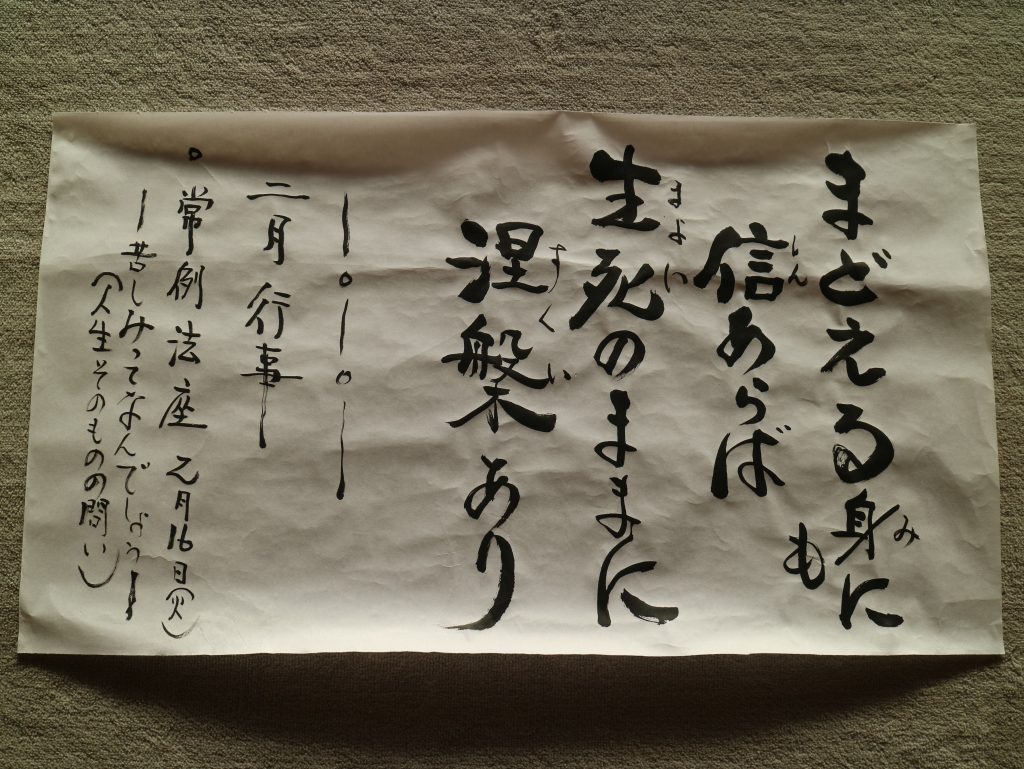 まどえる身にも
み
信あらば
しん
生死のままに
まよい
涅槃あり
すくい
二月行事
。常例法座 二月16日(火)
ー苦しみってなんでしょうー
(人生そのものの問い)